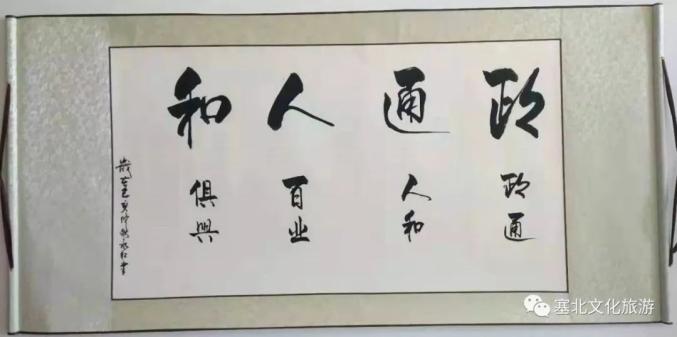 政通人和
政通
人和
百业
俱興
塞北文化旅游